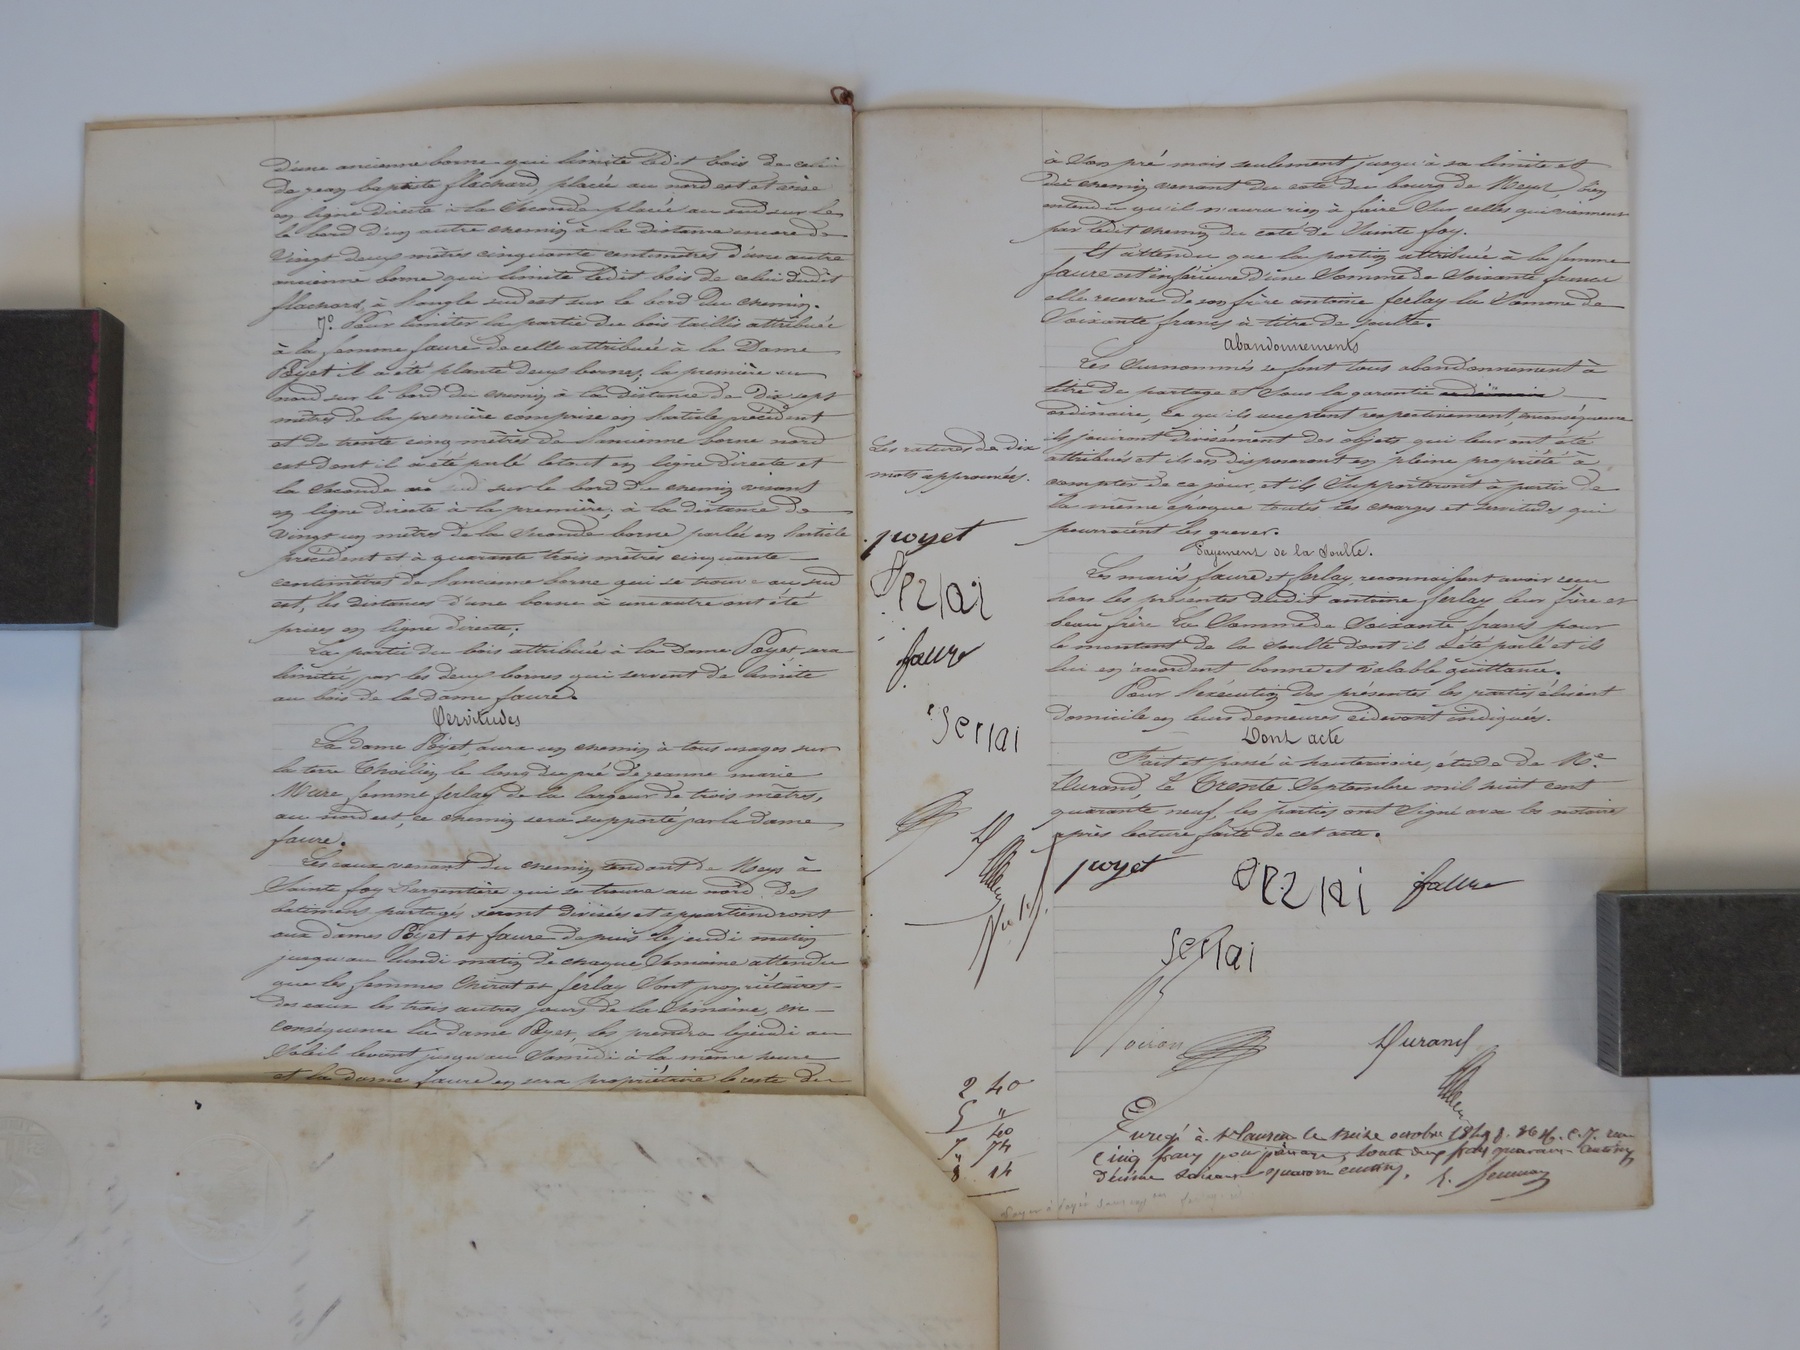 D'une ancienne borne qui limite ledit bois de celui
de jean baptiste flachard, placée au nord est et visé
en ligne directe à la seconde placée au sud sur le
le bord d'un autre chemin à la distance encore de
vingt deux mètres cinquante centimètres d'une autre
ancienne borne qui limite ledit bois de celui dudit
flachard, à l'angle sud est sur le bord du chemin.
7º. Pour limiter la partie du bois taillis attribuée
à la femme faure de celle attribuée à la Dame
Poyet il a été planté deux bornes, la première au
nord sur le bord du chemin à la distance de Dix sept
mètres de la première comprise en l'article précédent
et de trente cinq mètres de l'ancienne borne nord
est dont il a été parlé le tout en ligne directe et
la seconde au sud sur le bord du chemin visant
en ligne directe à la première, à la distance de
vingt un mètres de la seconde borne parlée en l'article
précédent et à quarante trois mètres cinquante
centimètres de l'ancienne borne qui se trouve au sud
est, les distances d'une borne à une autre ont été
prises en ligne directe.
La partie du bois attribuée à la Dame Poyet sera
limitée par les deux bornes qui servent de limite
au bois de la Dame faure.
Servitudes
La dame Poyet, aura un chemin à tous usages sur
la terre le long du pré de jeanne marie
Mure, femme ferlay de la largeur de trois mètres,
au nord est, ce chemin sera supporté par la dame
faure.
Les eaux venant du chemin tendant de Meys à
Sainte foy L'argentière qui se trouve au nord des
batimens partagés seront divisées et appartiendront
aux dames Poyet et faure depuis le jeudi matin
jusqu'au lundi matin de chaque Semaine attendu
que les femmes et ferlay sont propriétaires
des eaux les trois autres jours de la Semaine, en
conséquence la dame Poyet, les prendra le jeudi au
Soleil levant jusqu'au Samedi à la même heure
et la dame faure en sera propriétaire le reste du
à son pré mais seulement jusqu'à sa limite et
du chemin venant du coté du bourg de Meys, bien
entendu qu'il n'aura rien à faire sur celles qui viennent
par ledit chemin du coté de Sainte foy.
Et attendu que la portion attribuée à la femme
faure est inférieure d'une Somme de Soixante francs
elle recevra de son frère antoine ferlay la Somme de
Soixante francs à titre de soulte.
Abandonnements
Les Surnommés se font tous abandonnement à
titre de partage et sous la garantie ordinaire
ordinaire, ce qu'ils acceptent respectivement, en conséquence
ils jouiront divisément des objets qui leur ont été
attribués et ils en disposeront en pleine propriété à
compter de ce jour, et ils Supporteront à partir de
la même époque toutes les charges et servitudes qui
pourraient les grever.
Payement de la soulte.
Les mariés faure et ferlay reconnaissent avoir reçu
hors les présentes dudit antoine ferlay leur frère et
beau frère la Somme de Soixante francs pour
le montant de la soulte dont il a été parlé et ils
lui en accordent bonne et valable quittance.
Pour l'exécution des présentes les parties élisent
domicile en leurs demeures cidevant indiquées.
Dont acte
Fait et passé à hauterivoire, étude de Me.
Durand, le Trente Septembre mil huit cent
quarante neuf, les parties ont signé avec les notaires
après lecture faite de cet acte.
Les ratures de dix
mots approuvées.
poyet
faure
poyet
faure
Durand
2 40
5 "
40
7 74
8 14
Enregé à St Laurent le seize octobre 1849
cinq francs pour partage, soulte deux francs quarante centimes
décime soixante quatorze centimes.